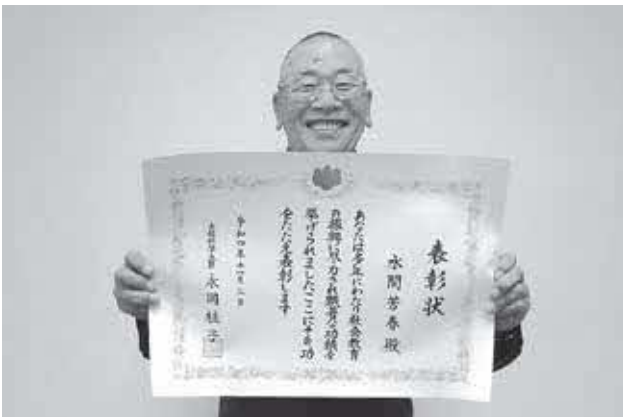 表彰状
水間芳春殿
あなたは多年にわたり社会教育
の振興に尽力され顕著な功績を
挙げられましたここにその功
をたたえ表彰します
令和四年十一月二日
文部科学大臣 永岡桂子